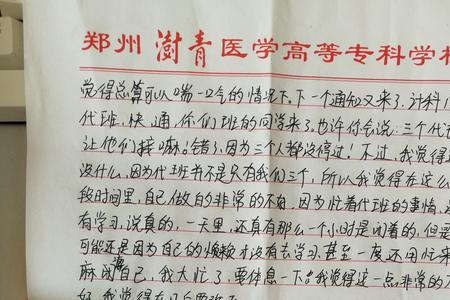 郑州澍青医学高等专科学校
觉得总算可以喘一口气的情况下。下一个通知又来了,计科1
代班,快通,你们班的同学来了,也许你会说:三个代
让他们接嘛。错!因为三个人都没停过!不过,我觉得这
没什么,因为代班书不是只有我们三个,所以我觉得在这么
段时间里,自己做的非常的不好,因为忙着代班的事情,
有学习,说真的,一天里,还真有那么一个小时是闲着的,但是
可能还是因为自己的懒才没有去学习,甚至一度还用忙来
麻自己,我太忙了,要休息一下。我觉得这一点非常的不
好,我觉得在以